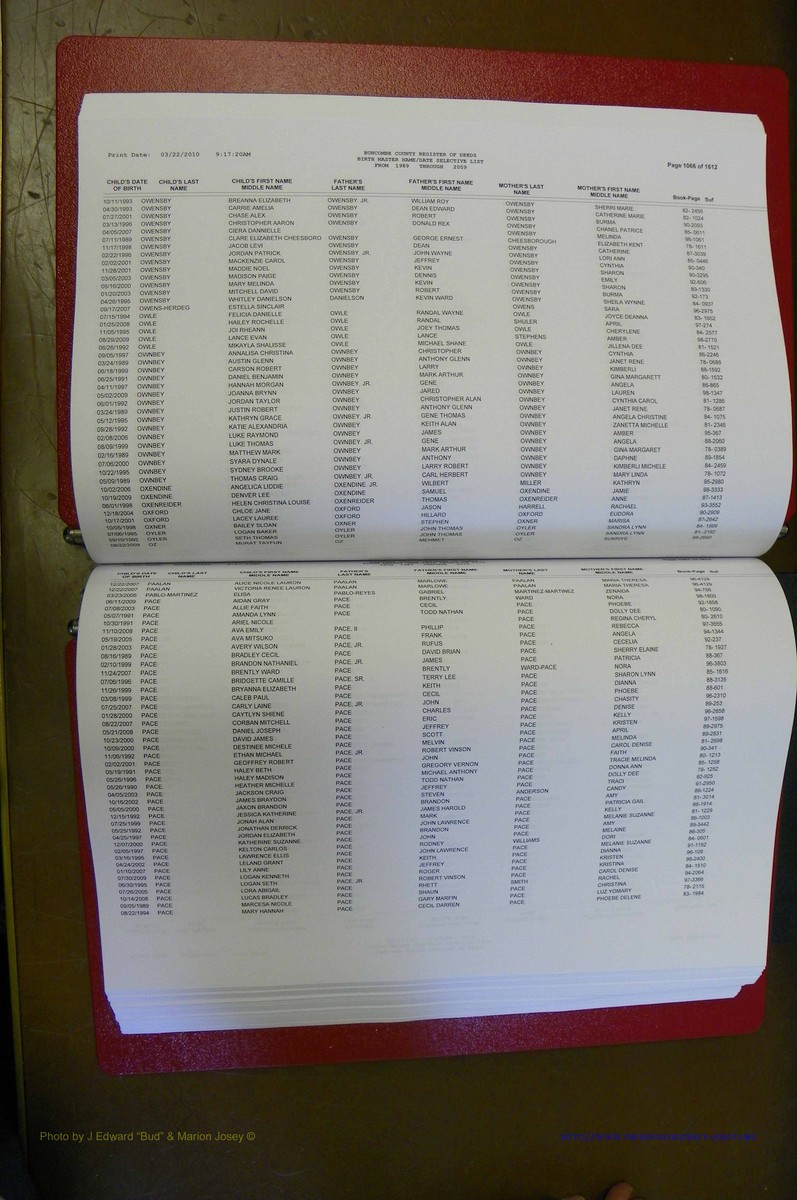 Print Date: 03/22/2010 9:17:20AM
BUNCOMBE COUNTY REGISTER OF DEEDS
BIRTH MASTER NAME/DATE SELECTIVE LIST
FROM 1989 THROUGH 2009
Page 1066 of 1612
CHILD'S DATE CHILD'S LAST CHILD'S FIRST NAME FATHER'S FATHER'S FIRST NAME MOTHER'S LAST MOTHER'S FIRST NAME
OF BIRTH NAME MIDDLE NAME LAST NAME MIDDLE NAME NAME MIDDLE NAME Book-Page Suf
10/11/1993 OWENSBY BREANNA ELIZABETH OWENSBY, JR. WILLIAM ROY OWENSBY SHERRI MARIE 82- 2456
04/30/1993 OWENSBY CARRIE AMELIA OWENSBY DEAN EDWARD OWENSBY CATHERINE MARIE 82- 1024
07/27/2001 OWENSBY CHASE ALEX OWENSBY ROBERT OWENSBY BURMA 90-2093
03/13/1996 OWENSBY CHRISTOPHER AARON OWENSBY DONALD REX OWENSBY CHANEL PATRICE 85- 0611
04/05/2007 OWENSBY CIERA DANNELLE OWENSBY MELINDA 96-1061
07/11/1989 OWENSBY CLARE ELIZABETH CHEESBORO OWENSBY GEORGE ERNEST CHEESBOROUGH ELIZABETH KENT 78- 1611
11/17/1998 OWENSBY JACOB LEVI OWENSBY DEAN OWENSBY CATHERINE 87-3039
02/22/1998 OWENSBY JORDAN PATRICK OWENSBY, JR. JOHN WAYNE OWENSBY LORI ANN 85- 5446
02/02/2001 OWENSBY MACKENZIE CAROL OWENSBY JEFFREY OWENSBY CYNTHIA 90-340
11/28/2001 OWENSBY MADDIE NOEL OWENSBY KEVIN OWENSBY SHARON 90-3295
03/05/2003 OWENSBY MADISON PAIGE OWENSBY DENNIS OWENSBY EMILY 92-606
05/16/2000 OWENSBY MARY MELINDA OWENSBY KEVIN OWENSBY SHARON 89-1330
01/20/2003 OWENSBY MITCHELL DAVID OWENSBY ROBERT OWENSBY BURMA 92-173
04/26/1995 OWENSBY WHITLEY DANIELSON DANIELSON KEVIN WARD OWENSBY SHEILA WYNNE 84- 0937
09/17/2007 OWENS-HERDEG ESTELLA SINCLAIR OWENS SARA 96-2975
07/15/1994 OWLE FELICIA DANIELLE OWLE RANDAL WAYNE OWLE JOYCE DEANNA 83- 1852
01/25/2008 OWLE HAILEY ROCHELLE OWLE RANDAL SHULER APRIL 97-274
11/05/1995 OWLE JOI RHEANN OWLE JOEY THOMAS OWLE CHERYLENE 84- 2577
08/29/2009 OWLE LANCE EVAN OWLE LANCE STEPHENS AMBER 98-2770
06/26/1992 OWLE MIKAYLA SHALISSE OWLE MICHAEL SHANE OWLE JILLENA DEE 81- 1521
09/05/1997 OWNBEY ANNALISA CHRISTINA OWNBEY CHRISTOPHER OWNBEY CYNTHIA 86-2246
03/24/1989 OWNBEY AUSTIN GLENN OWNBEY ANTHONY GLENN OWNBEY JANET RENE 78- 0686
06/18/1999 OWNBEY CARSON ROBERT OWNBEY LARRY OWNBEY KIMBERLI 88-1592
06/25/1991 OWNBEY DANIEL BENJAMIN OWNBEY MARK ARTHUR OWNBEY GINA MARGARETT 80- 1532
04/11/1997 OWNBEY HANNAH MORGAN OWNBEY, JR. GENE OWNBEY ANGELA 86-865
05/02/2009 OWNBEY JOANNA BRYNN OWNBEY JARED OWNBEY LAUREN 98-1347
06/01/1992 OWNBEY JORDAN TAYLOR OWNBEY CHRISTOPHER ALAN OWNBEY CYNTHIA CAROL 81- 1286
03/24/1989 OWNBEY JUSTIN ROBERT OWNBEY ANTHONY GLENN OWNBEY JANET RENE 78- 0687
05/12/1995 OWNBEY KATHRYN GRACE OWNBEY, JR. GENE THOMAS OWNBEY ANGELA CHRISTINE 84- 1075
09/28/1992 OWNBEY KATIE ALEXANDRIA OWNBEY KEITH ALAN OWNBEY ZANETTA MICHELLE 81- 2346
02/08/2006 OWNBEY LUKE RAYMOND OWNBEY JAMES OWNBEY AMBER 95-367
08/09/1999 OWNBEY LUKE THOMAS OWNBEY, JR. GENE OWNBEY ANGELA 88-2060
02/16/1989 OWNBEY MATTHEW MARK OWNBEY MARK ARTHUR OWNBEY GINA MARGARET 78- 0389
07/06/2000 OWNBEY SYARA DYNALE OWNBEY ANTHONY OWNBEY DAPHNE 89-1854
10/22/1995 OWNBEY SYDNEY BROOKE OWNBEY LARRY ROBERT OWNBEY KIMBERLI MICHELE 84- 2459
05/09/1989 OWNBEY THOMAS CRAIG OWNBEY, JR. CARL HERBERT OWNBEY MARY LINDA 78- 1072
10/02/2006 OXENDINE ANGELICA LIDDIE OXENDINE, JR. WILBERT MILLER KATHRYN 95-2980
10/19/2009 OXENDINE DENVER LEE OXENDINE SAMUEL OXENDINE JAMIE 98-3333
06/01/1998 OXENREIDER HELEN CHRISTINA LOUISE OXENREIDER THOMAS OXENREIDER ANNE 87-1413
12/18/2004 OXFORD CHLOE JANE OXFORD JASON HARRELL RACHAEL 93-3552
10/17/2001 OXFORD LACEY LAUREE OXFORD HILLARD OXFORD EUDORA 90-2909
10/05/1998 OXNER BAILEY SLOAN OXNER STEPHEN OXNER MARISA 87-2642
07/06/1995 OYLER LOGAN BAKER OYLER JOHN THOMAS OYLER SANDRA LYNN
09/19/1992 OYLER SETH THOMAS OYLER JOHN THOMAS OYLER SANDRA LYNN
08/22/2009 OZ MURAT TAYFUN OZ MEHMET OZ
CHILD'S DATE CHILD'S LAST CHILD'S FIRST NAME FATHER'S FATHER'S FIRST NAME MOTHER'S LAST MOTHER'S FIRST NAME
OF BIRTH NAME MIDDLE NAME LAST NAME MIDDLE NAME NAME MIDDLE NAME Book-Page Suf
12/22/2007 PAALAN ALICE NICOLE LAURON PAALAN MARLOWE PAALAN MARIA THERESA 96-4128
12/22/2007 PAALAN VICTORIA RENEE LAURON PAALAN MARLOWE PAALAN MARIA THERESA 96-4129
03/23/2005 PABLO-MARTINEZ ELISA PABLO-REYES GABRIEL MARTINEZ-MARTINEZ ZENAIDA 94-756
06/11/2009 PACE AIDAN GRAY PACE BRENTLY WARD NORA 98-1800
07/08/2003 PACE ALLIE FAITH PACE CECIL PACE PHOEBE 92-1808
05/07/1991 PACE AMANDA LYNN PACE TODD NATHAN PACE DOLLY DEE 80- 1090
10/30/1991 PACE ARIEL NICOLE PACE REGINA CHERYL 80- 2610
11/10/2008 PACE AVA EMILY PACE, II PHILLIP PACE REBECCA 97-3655
05/19/2005 PACE AVA MITSUKO PACE FRANK PACE ANGELA 94-1344
01/28/2003 PACE AVERY WILSON PACE, JR. RUFUS PACE CECELIA 92-237
08/16/1989 PACE BRADLEY CECIL PACE DAVID BRIAN PACE SHERRY ELAINE 78- 1927
02/10/1999 PACE BRANDON NATHANIEL PACE, JR. JAMES PACE PATRICIA 88-367
11/24/2007 PACE BRENTLY WARD PACE BRENTLY WARD-PACE NORA 96-3803
07/06/1995 PACE BRIDGETTE CAMILLE PACE, SR. TERRY LEE PACE SHARON LYNN 85- 1616
11/26/1999 PACE BRYANNA ELIZABETH PACE KEITH PACE DIANNA 88-3135
03/08/1999 PACE CALEB PAUL PACE CECIL PACE PHOEBE 88-601
07/25/2007 PACE CARLY LAINE PACE, JR. JOHN PACE CHASITY 96-2310
01/28/2000 PACE CAYTLYN SHIENE PACE CHARLES PACE DENISE 89-253
08/22/2007 PACE CORBAN MITCHELL PACE ERIC PACE KELLY 96-2658
05/21/2008 PACE DANIEL JOSEPH PACE JEFFREY PACE KRISTEN 97-1598
10/23/2000 PACE DAVID JAMES PACE SCOTT PACE APRIL 89-2975
10/09/2000 PACE DESTINEE MICHELE PACE MELVIN PACE MELINDA 89-2831
11/06/1992 PACE ETHAN MICHAEL PACE, JR. ROBERT VINSON PACE CAROL DENISE 81- 2698
02/02/2001 PACE GEOFFREY ROBERT PACE JOHN PACE FAITH 90-341
05/19/1991 PACE HALEY BETH PACE GREGORY VERNON PACE TRACIE MELINDA 80- 1213
05/26/1996 PACE HALEY MADISON PACE MICHAEL ANTHONY PACE DONNA ANN 85- 1258
05/26/1990 PACE HEATHER MICHELLE PACE TODD NATHAN PACE DOLLY DEE 79- 1252
04/05/2003 PACE JACKSON CRAIG PACE JEFFREY PACE TRACI 92-925
10/16/2002 PACE JAMES BRAYDON PACE STEVEN ANDERSON CANDY 91-2950
05/05/2000 PACE JAXON BRANDON PACE BRANDON PACE AMY 89-1224
12/15/1992 PACE JESSICA KATHERINE PACE, JR. JAMES HAROLD PACE PATRICIA GAIL 81- 3014
07/25/1999 PACE JONAH ALAN PACE MARK PACE KELLY 88-1914
05/25/1992 PACE JONATHAN DERRICK PACE JOHN LAWRENCE PACE MELANIE SUZANNE 81- 1229
04/25/1997 PACE JORDAN ELIZABETH PACE BRANDON PACE AMY 86-1003
12/07/2000 PACE KATHERINE SUZANNE PACE JOHN PACE MELAINE 89-3442
02/05/1997 PACE KELTON CARLOS PACE RODNEY WILLIAMS DORI 86-305
03/16/1995 PACE LAWRENCE ELLIS PACE JOHN LAWRENCE PACE MELANIE SUZANNE 84- 0601
04/24/2002 PACE LELAND GRANT PACE KEITH PACE DIANNA 91-1192
01/10/2007 PACE LILY ANNE PACE JEFFREY PACE KRISTEN 96-109
07/30/2009 PACE LOGAN KENNETH PACE ROGER PACE KRISTINA 98-2400
06/30/1995 PACE LOGAN SETH PACE, JR. ROBERT VINSON PACE CAROL DENISE 84- 1510
07/26/2005 PACE LORA ABIGAIL PACE RHETT SMITH RACHEL 94-2064
10/14/2008 PACE LUCAS BRADLEY PACE SHAUN PACE CHRISTINA 97-3366
09/05/1989 PACE MARCESA NICOLE PACE GARY MARFIN PACE LUZ YOMARY 78- 2116
08/22/1994 PACE MARY HANNAH PACE CECIL DARREN PACE PHOEBE DELENE 83- 1984
Photo by J Edward "Bud" & Marion Josey ©